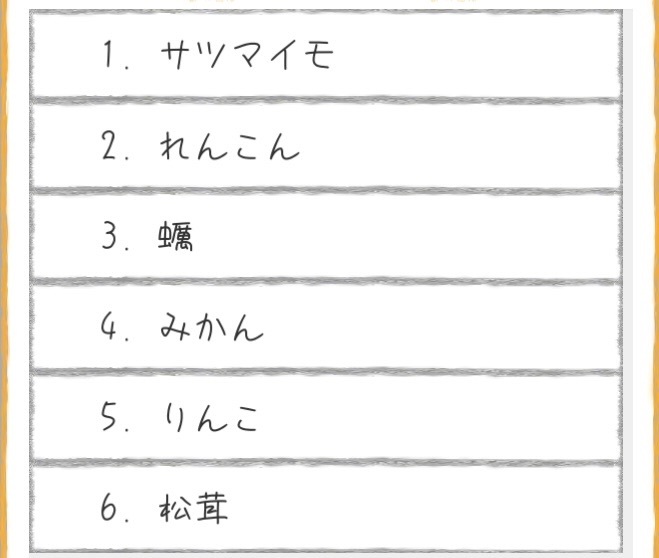 1. サツマイモ
2. れんこん
3. 蠣
4. みかん
5. りんこ
6. 松茸